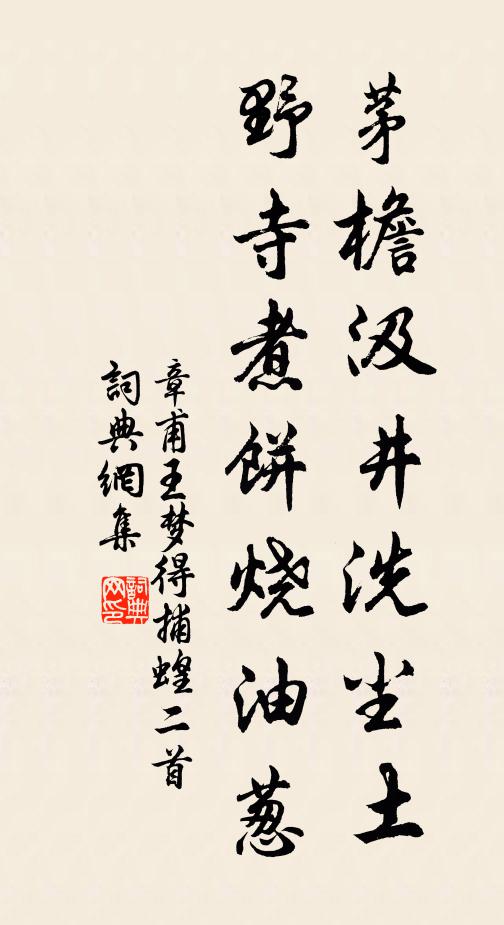 茅檐汲井洗尘土
野寺煮餅烧油葱
章甫王梦得捕蝗二首
詞典網集
詞典網印